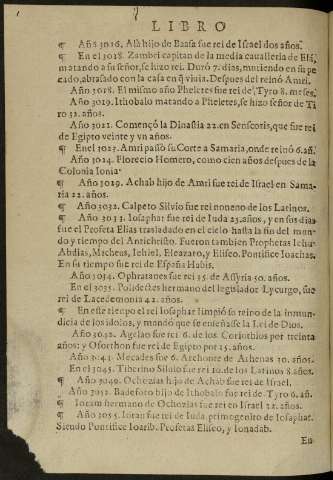 LIBRO
¶ Año 3016. Alá hijo de Baasa fue rei de Israel dos años.
¶ En el 3018. Zambri capitan de la media cavalleria de Elá,
matando a su señor, se hizo rei. Duró 7. dias, muriendo en su pe
cado, abrasado con la casa en q̃ vivia. Despues del reinó Amri.
Año 3018. El mismo año Pheletes fue rei de Tyro 8. meses.
Año 3019. Ithobalo matando a Pheletes, se hizo señor de Ti
ro 32. años.
Año 3022. Començó la Dinastia 22. en Senscoris, que fue rei
de Egipto veinte y vn años.
¶ En el 3023. Amri passó su Corte a Samaria, onde reinó 6. añ.
¶ Año 3024. Florecio Homero, como cien años despues de la
Colonia Ionia.
¶ Año 3029. Achab hijo de Amri fue rei de Israel en Sama-
ria 22. años.
¶ Año 3032. Calpeto Silvio fue rei noneno de los Latinos.
¶ Año 3033. Iosaphat fue rei de Iuda 25. años, y en sus dias
fue el Profeta Elias trasladado en el cielo hasta la fin del mun-
do y tiempo del Antichristo. Fueron tambien Prophetas Iehu
Abdias, Micheas, Iehiel, Eleazaro, y Eliseo. Pontifice Ioachas.
En su tiempo fue rei de España Habis.
Año 3034. Ophratanes fue rei 35. de Assyria 50. años.
En el 3035. Polidectes hermano del legislador Lycurgo, fue
rei de Lacedemonia 42. años.
¶ En este tiempo el rei Iosaphat limpió su reino de la inmun-
dicia de los idolos, y mandó que se enseñasse la Lei de Dios.
Año 3042. Agelao fue rei 6. de los Corinthios por treinta
años: y Osorthon fue rei de Egipto por 15. años.
Año 3043. Mecades fue 6. Archonte de Athenas 30. años.
En el 3045. Tiberino Silvio fue rei 10. de los Latinos 8. años.
¶ Año 3049. Ochozias hijo de Achab fue rei de Israel.
Año 3052. Badefoto hijo de Ithobalo fue rei de Tyro 6. añ.
¶ Ioram hermano de Ochozias fue rei en Israel 12. años.
¶ Año 3055. Ioran fue rei de Iuda primogenito de Iosaphat.
Siendo Pontifice Ioarib. Profetas Eliseo, y Ionadab.
En